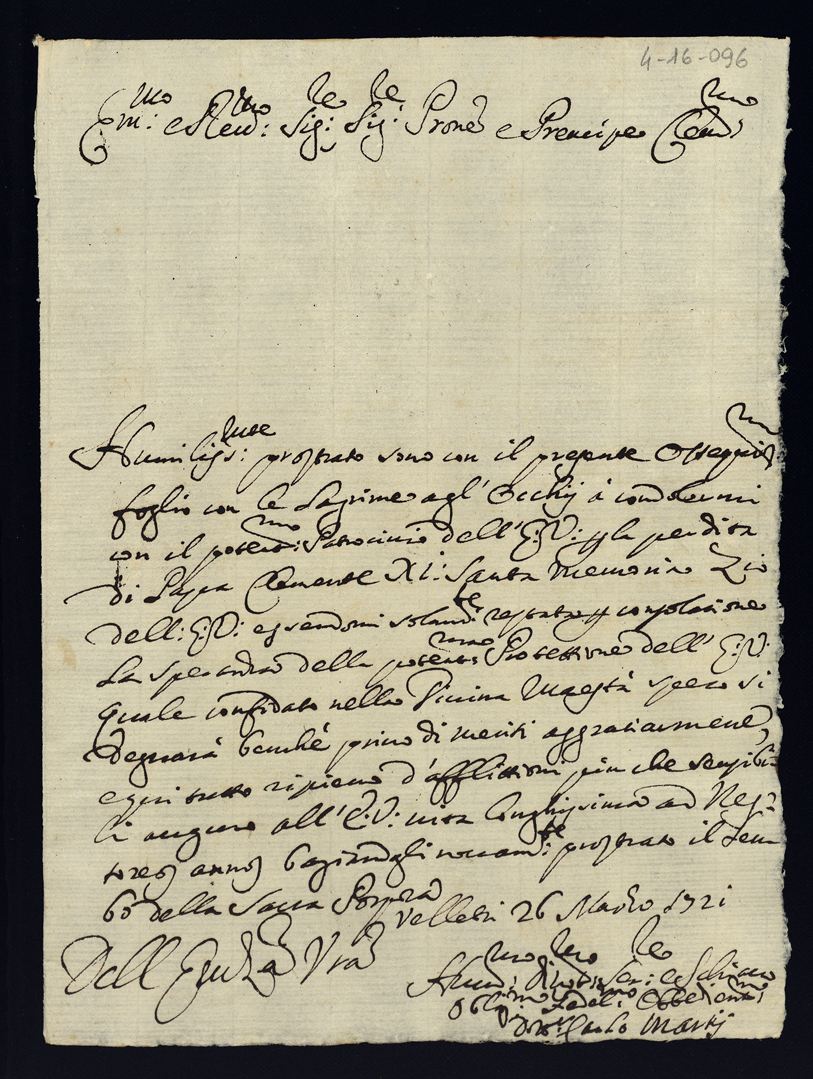 4-16-096
Em:mo e Reu:mo Sig:re Sig:re Prone e Prencipe Clem:mo
Humiliss:mte prostrato sono con il presente Ossequiosmo
foglio con le Lagrime agl' Occhij à condolermi
con il potent:mo Patrocinio dell' E:V: p la perdita
di Papa Clemente XI: Santa Memoria Zio
dell: E:V: essendomi solam:te restata p consolatione
La speranza della potent:ma Protettione dell' E:V:
quale confidato nella Divina Maestà spero si
degnarà benchè privo di meriti aggratiarmene,
e qui tutto ripieno d'afflittioni più che sensibi-
li auguro all' E:V: vita longhissima ad Nes-
toreos annos baciandogli novam:te prostrato il Lem-
bo della Sacra Porpora
Velletri 26 Marzo 1721
Dell Emza Vra
Hum:mo Divot:mo Ser:re e Schiavo
Obligmo Fedel:mo Obbedient:mo
Carlo Martij